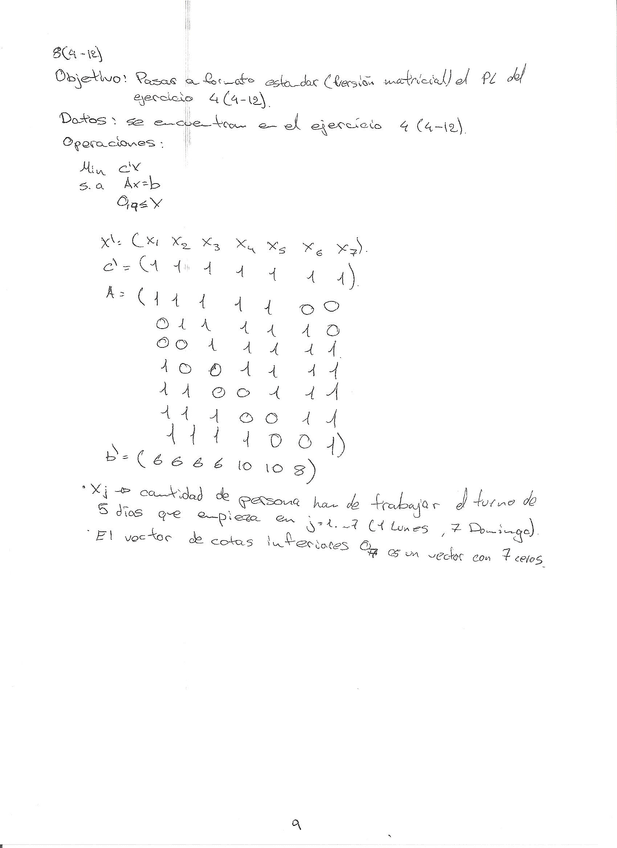 8(4-12)
Objetivo: Pasar a formato estandar (Versión matricial) el PL del
ejercicio 4(4-12).
Datos: se encuentran en el ejercicio 4(4-12).
Operaciones:
Min c'x
s.a Ax=b
0,q≤X
x'= (x1 x2 x3 x4 x5 x6 x7).
c' = (1 1 1 1 1 1 1).
A = (1 1 1 1 1 0 0
0 1 1 1 1 1 0
0 0 1 1 1 1 1
1 0 0 1 1 1 1
1 1 0 0 1 1 1
1 1 1 0 0 1 1
1 1 1 1 0 0 1)
b' = (6 6 6 6 10 10 8)
· Xj → cantidad de persona han de trabajar el turno de
5 días que empieza en j=1...7 (1 Lunes, 7 Domingo).
· El vector de cotas inferiores 07 es un vector con 7 ceros.
9